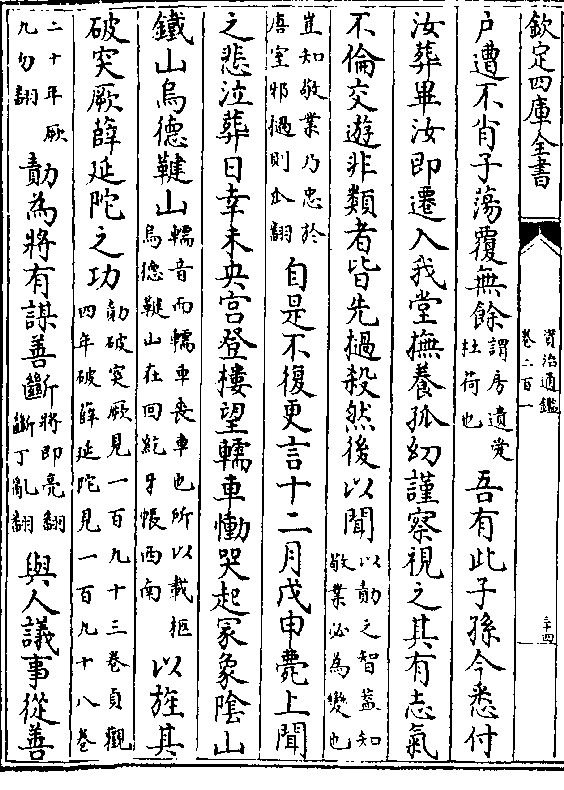 欽定四庫全書
資治通鑑
卷二百一
三十四
戶遭不肖子蕩覆無餘
謂房遺愛
杜荷也
吾有此子孫今悉付
汝葬畢汝即遷入我堂撫養孤幼謹察視之其有志氣
不倫交遊非類者皆先撾殺然後以聞
以勣之智蓋知
敬業必為變也
豈知敬業乃忠於
唐室邪撾則瓜翻
自是不復更言十二月戊申薨上聞
之悲泣葬日幸未央宮登樓望轜車慟哭起冢象陰山
鐵山烏德鞬山
轜音而轜車喪車也所以載柩
烏德鞬山在回紇牙帳西南
以旌其
破突厥薛延陀之功
勣破突厥見一百九十三卷貞觀
四年破薛延陀見一百九十八卷
二十年厥
九勿翻
勣為將有謀善斷
將即亮翻
斷丁亂翻
與人議事從善